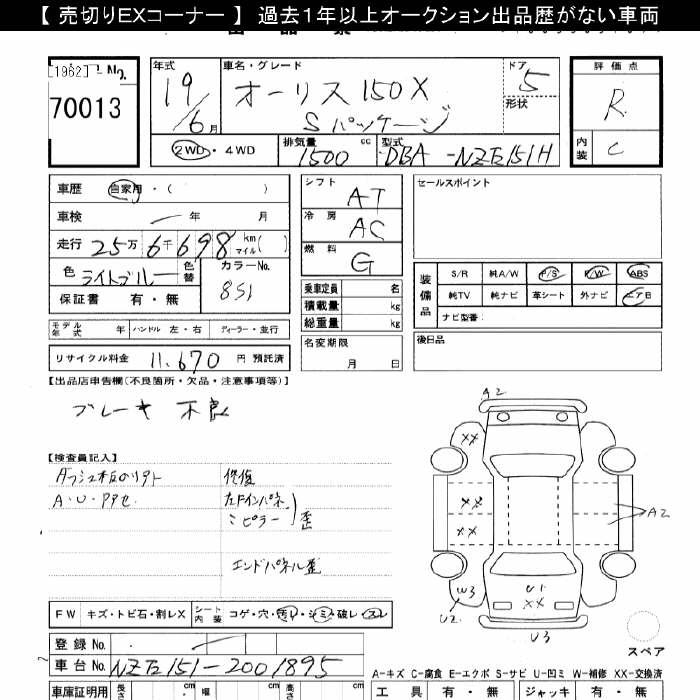 【 売切りEXコーナー 】 過去1年以上オークション出品歴がない車両
[1962] No.
70013
年式
19
6 月
車名・グレード
オーリス 150X
Sパッケージ
ドア
5
形状
評価点
R
内装
C
2WD・4WD
排気量
1500 cc
型式
DBA-NZE151H
車歴 自家用・( )
車検 年 月
走行 25万 6千 698 km マイル( )
色 ライトブルー 色替
カラーNo.
851
保証書 有・無
モデル年式 年 ハンドル 左・右 ディーラー・並行
リサイクル料金 11,670 円 預託済
シフト
AT
冷房
AC
燃料
G
乗車定員 名
積載量 kg
総重量 kg
名変期限
月 日
セールスポイント
装備品
S/R 純A/W P/S P/W ABS
純TV 純ナビ 革シート 外ナビ エアB
ナビ型番:
後日品
【出品店申告欄(不良箇所・欠品・注意事項等)】
ブレーキ 不良
【検査員記入】
修復
ピラー
歪
エンドパネル歪
A2
XX
XX
XX
A2
W3
U2
U1
XX
U3
スペア
FW キズ・トビ石・割レX シート内装 コゲ・穴・汚レ・シミ・破レ・スレ
登録 No.
車台 No. NZE151-2001895
A-キズ C-腐食 E-エクボ S-サビ U-凹ミ W-補修 XX-交換済
車庫証明用 長さ 幅 高さ
工具 有・無 ジャッキ 有・無